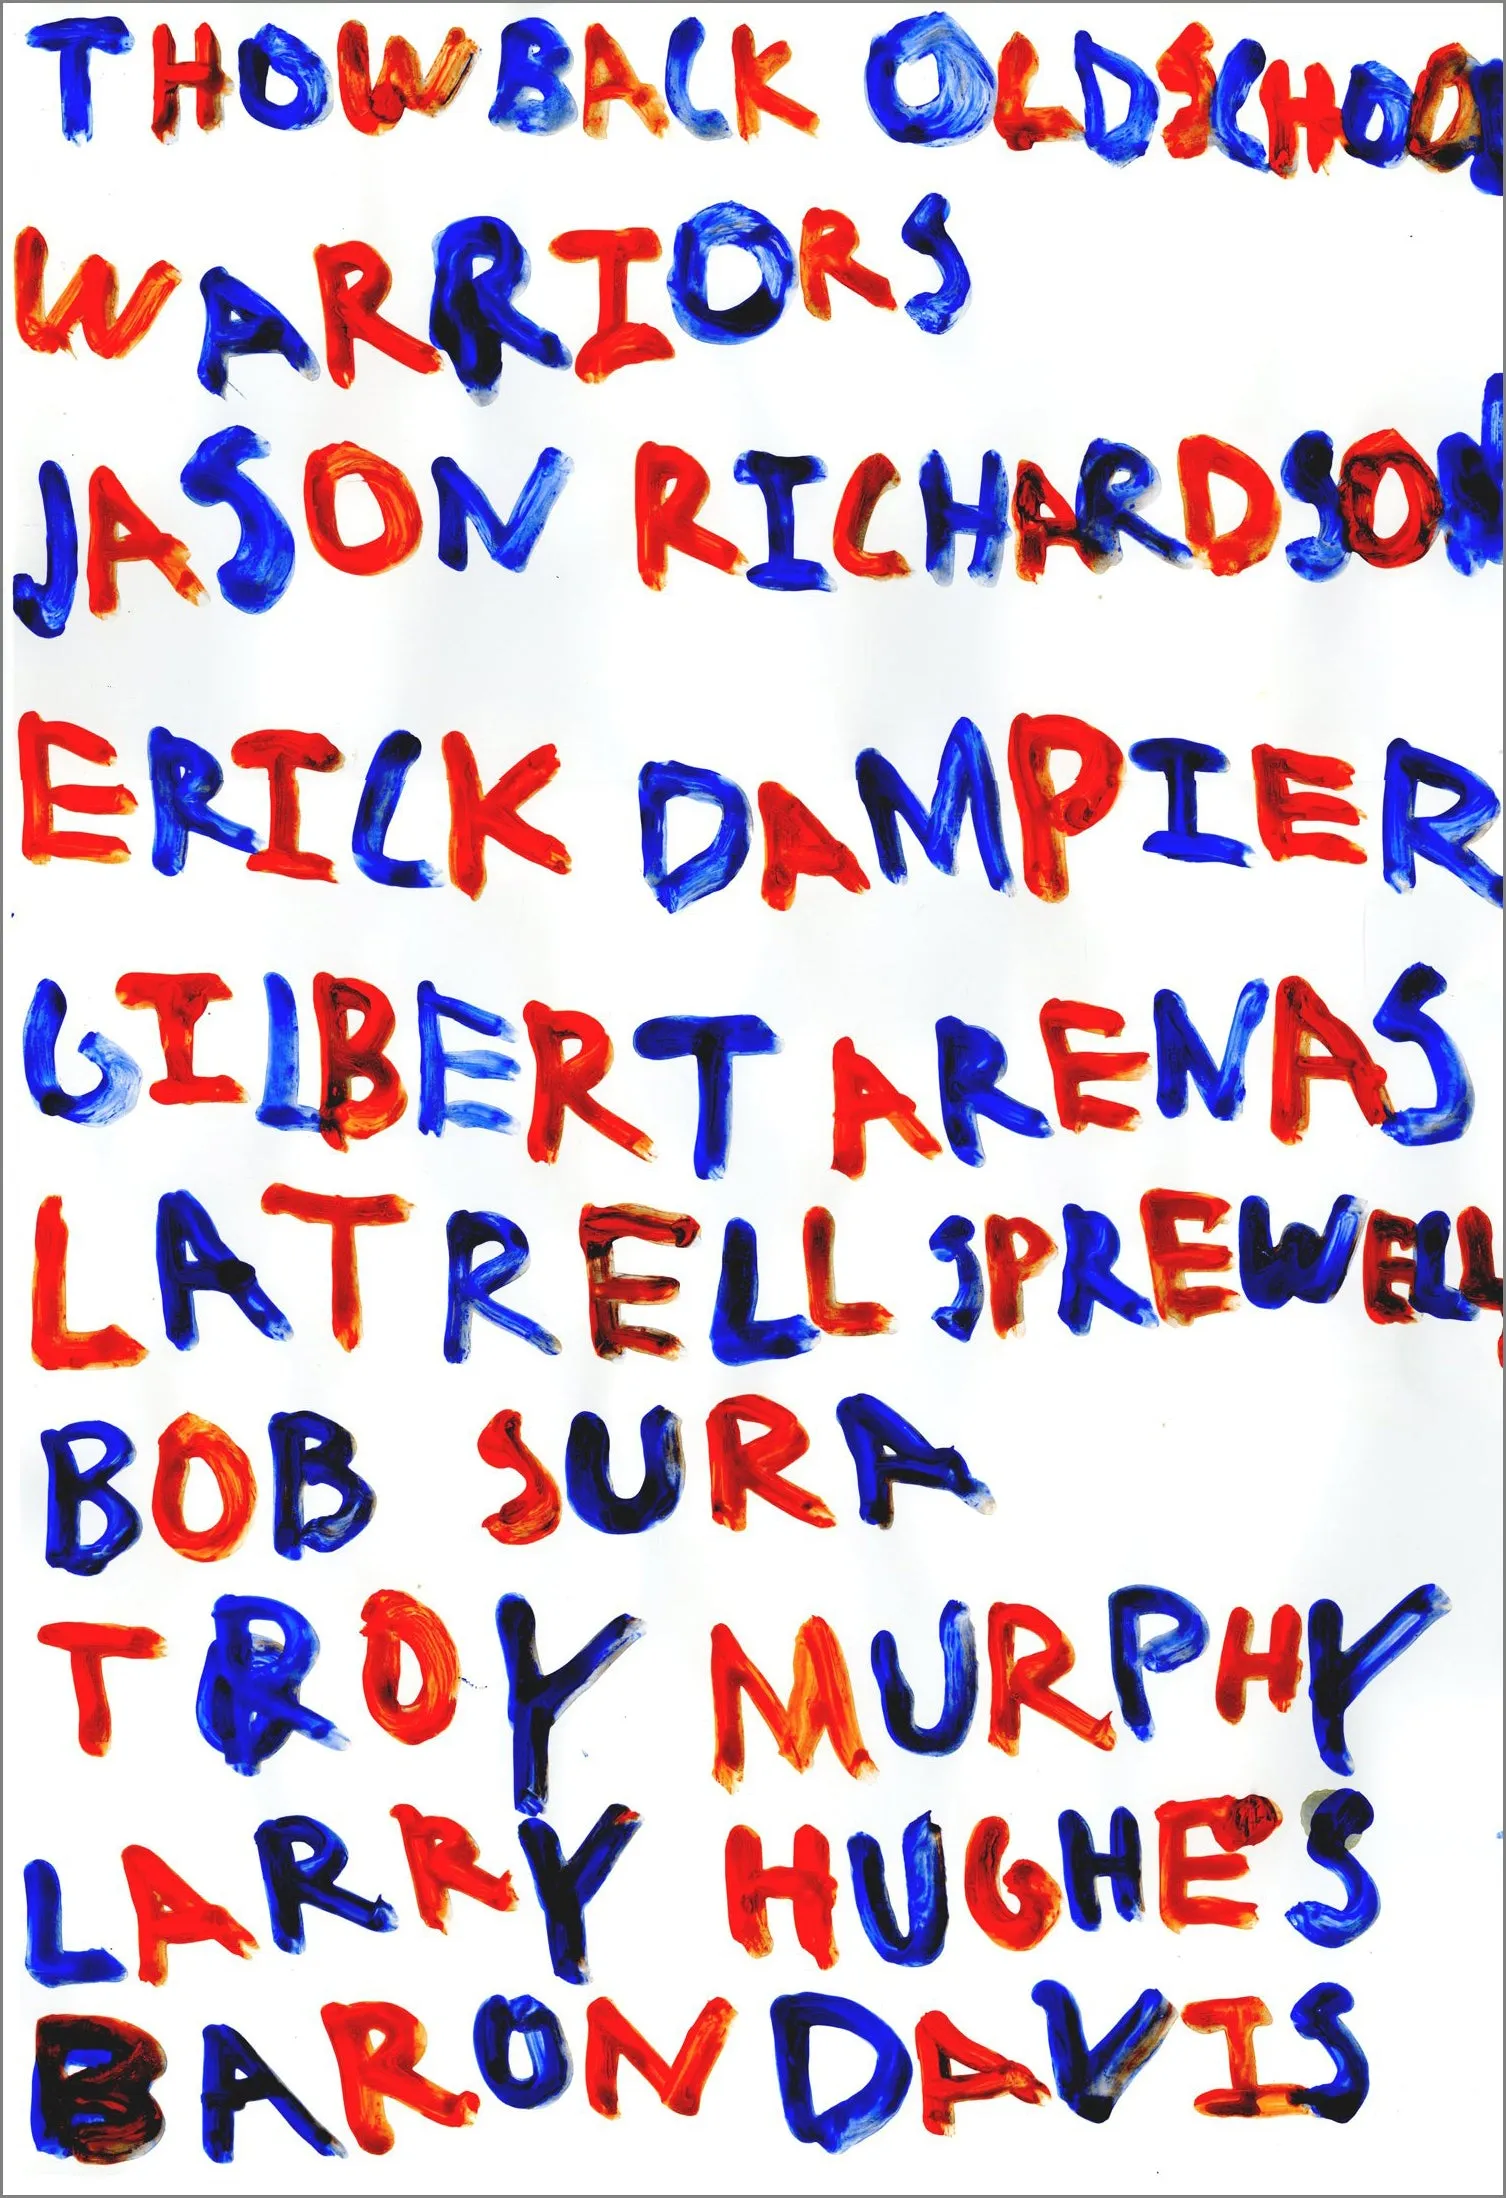 THOWBACK OLDSCHOOL
WARRIORS
JASON RICHARDSON
ERICK DAMPIER
GILBERT ARENAS
LATRELL SPREWELL
BOB SURA
TROY MURPHY
LARRY HUGHES
BARON DAVIS